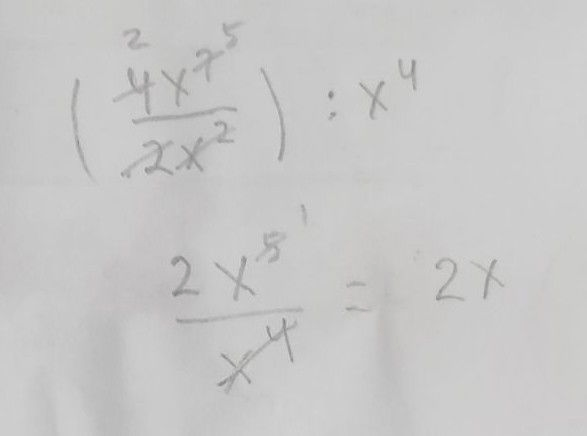 (4x^7/2x^2) : x^4
2x^5/x^4 = 2x